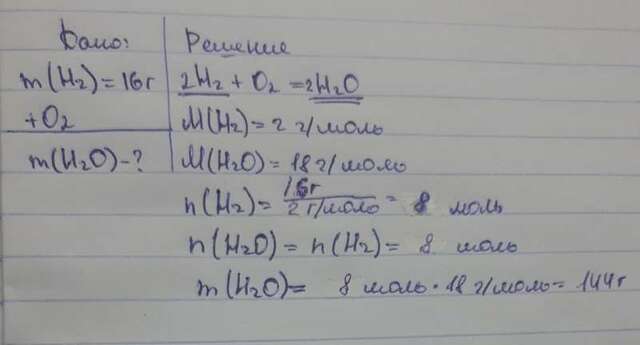 Дано:
m(H₂)=16г
+O₂
m(H₂O)-?
Решение
2H₂ + O₂ = 2H₂O
M(H₂)= 2 г/моль
M(H₂O)= 18 г/моль
n(H₂)= 16г / 2 г/моль = 8 моль
n(H₂O)= n(H₂)= 8 моль
m(H₂O)= 8 моль · 18 г/моль= 144г